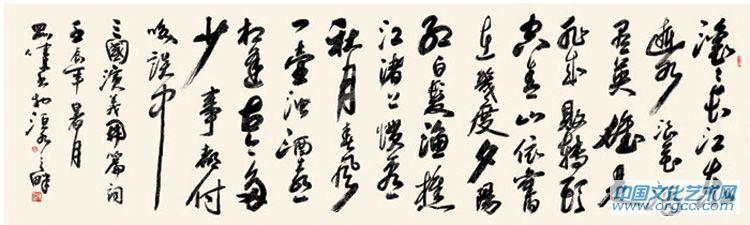 滚滚长江东
逝水浪花淘
尽英雄是
非成败轉頭
空青山依舊
在幾度夕陽
红白髮渔樵
江渚上慣看
秋月春风
一壶浊酒喜
相逢古今多
少事都付
笑談中
三國演義開篇词
壬辰年暑月
中国文化艺术网
www.orgcc.com